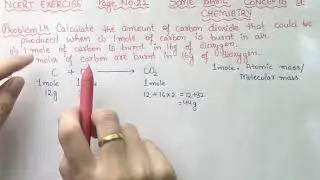 NCERT EXERCISE Page No:22 SOME BASIC CONCEPTS OF CHEMISTRY
Problem Calculate the amount of carbon dioxide that could be
produced when (i) 1 mole of carbon is burnt in air.
1 mole of carbon is burnt in 16g of dioxygen.
moles of carbon are burnt in 16g of dioxygen.
C + → CO2
1 mole 1 mole
12g
12+16×2 = 12+32
= 44g
1 mole = Atomic mass/
Molecular mass